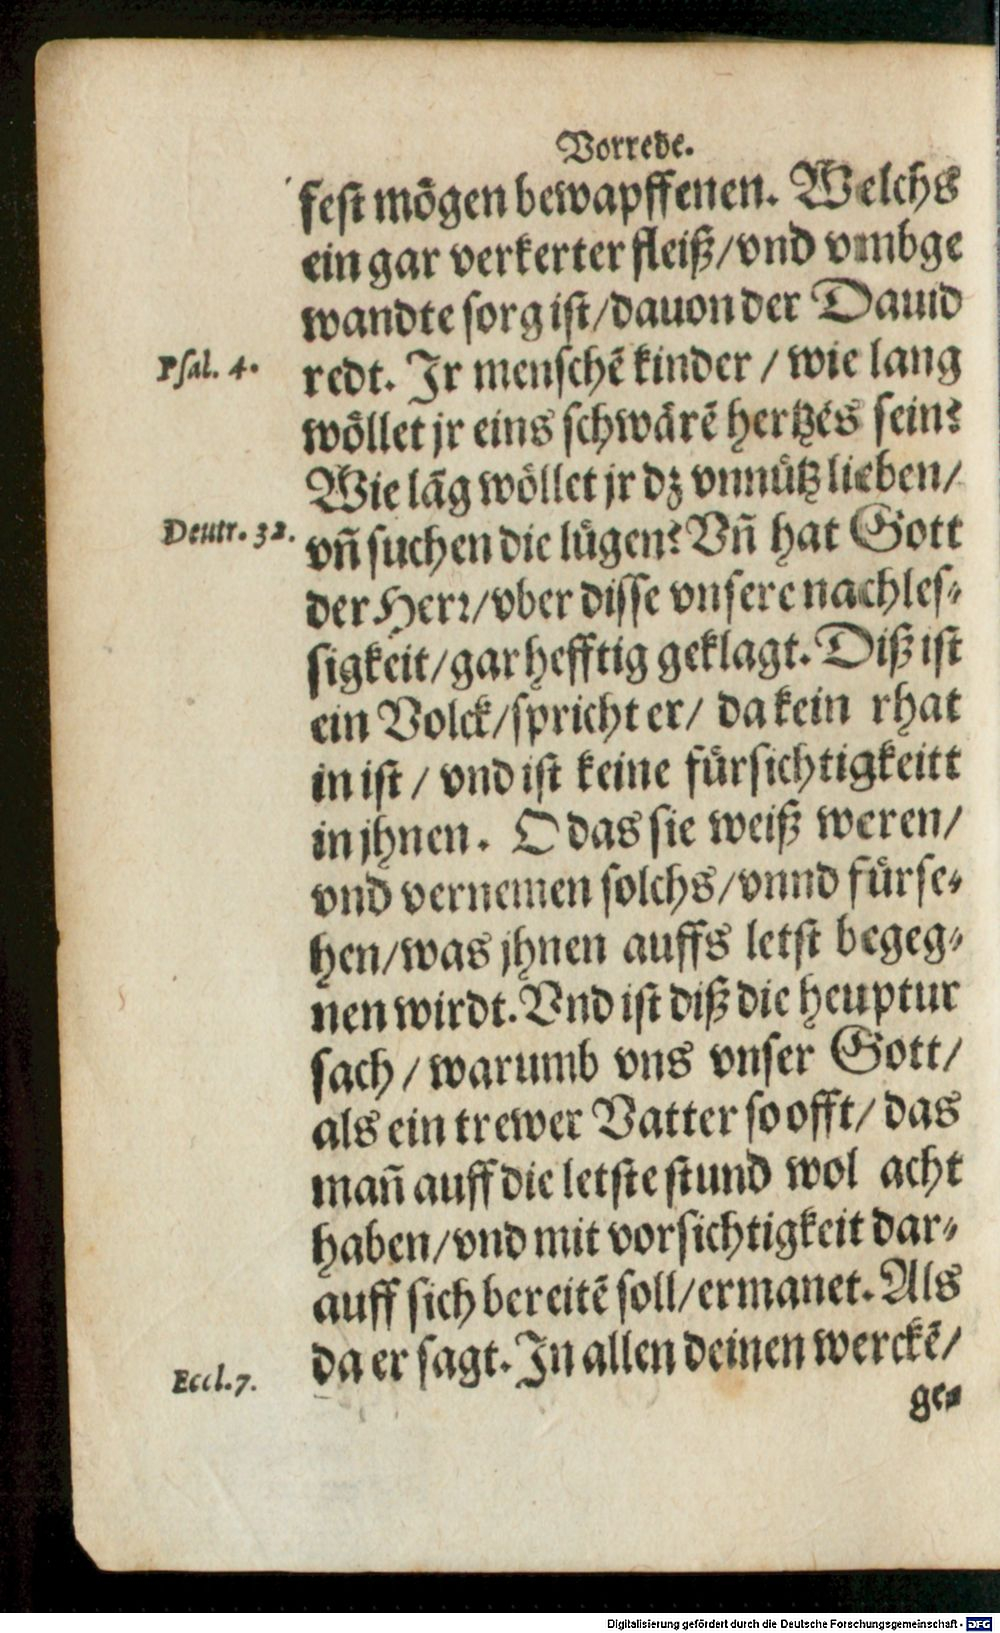 Vorrede.
fest mögen bewapffenen. Welchs
ein gar verkerter fleiß/vnd vmbge
wandte sorg ist/dauon der Dauid
Psal. 4.
redt. Ir menschē kinder / wie lang
wöllet jr eins schwärē hertzēs sein?
Wie lāg wöllet jr dz vnnütz lieben/
Deutr. 32.
vñ suchen die lügen? Vñ hat Gott
der Herr/vber disse vnsere nachles-
sigkeit/gar hefftig geklagt. Diß ist
ein Volck/spricht er/ da kein rhat
in ist / vnd ist keine fürsichtigkeitt
in jhnen. O das sie weiß weren/
vnd vernemen solchs/vnnd fürse-
hen/was jhnen auffs letst begeg-
nen wirdt. Vnd ist diß die heuptur
sach / warumb vns vnser Gott/
als ein trewer Vatter so offt/ das
mañ auff die letste stund wol acht
haben/vnd mit vorsichtigkeit dar-
auff sich bereitē soll/ermanet. Als
Eccl. 7.
da er sagt. In allen deinen werckē/
ge-
Digitalisierung gefördert durch die Deutsche Forschungsgemeinschaft - DFG